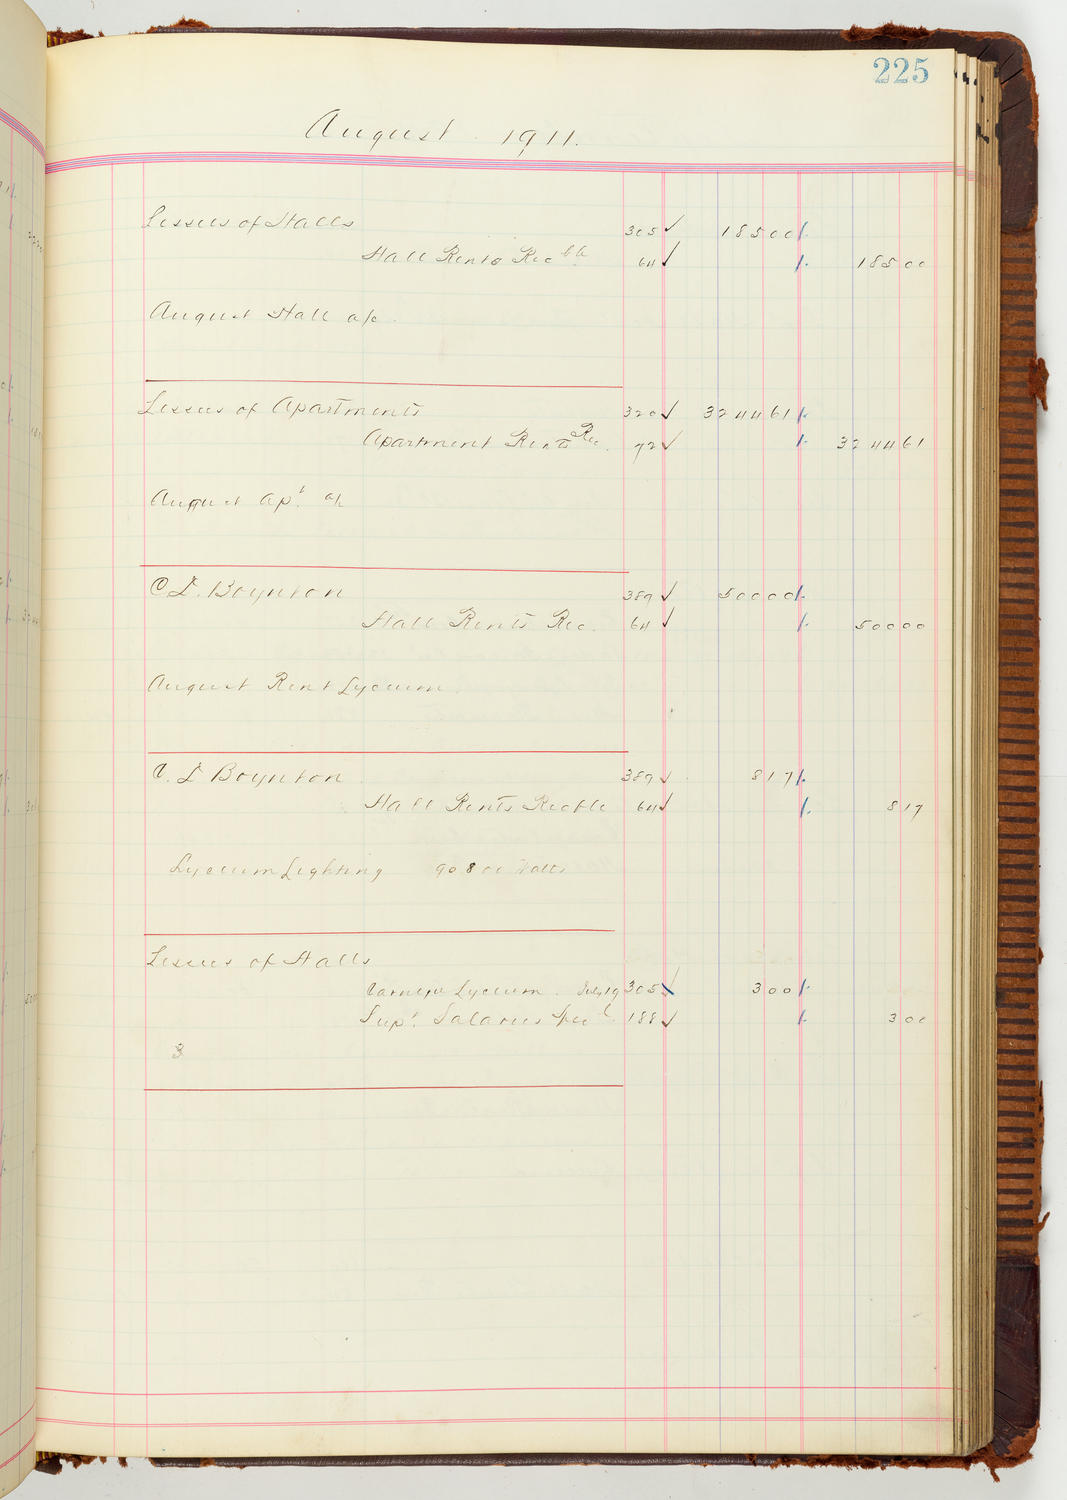 225
August 1911.
Lessees of Halls 305 ✓ 185 00
Hall Rents Rec'ble 64 ✓ 185 00
August Hall a/c
Lessees of Apartments 320 ✓ 3244 61
Apartment Rents Rec. 72 ✓ 3244 61
August Apt. a/c
C.L. Boynton 389 ✓ 500 00
Hall Rents Rec. 64 ✓ 500 00
August Rent Lyceum
C. L Boynton 389 ✓ 8 17
Hall Rents Recble 64 ✓ 8 17
Lyceum Lighting 90800 Watts
Lessees of Halls
Carnegie Lyceum. July 19 305 3 00
Supt. Salaries 188 ✓ 3 00
3